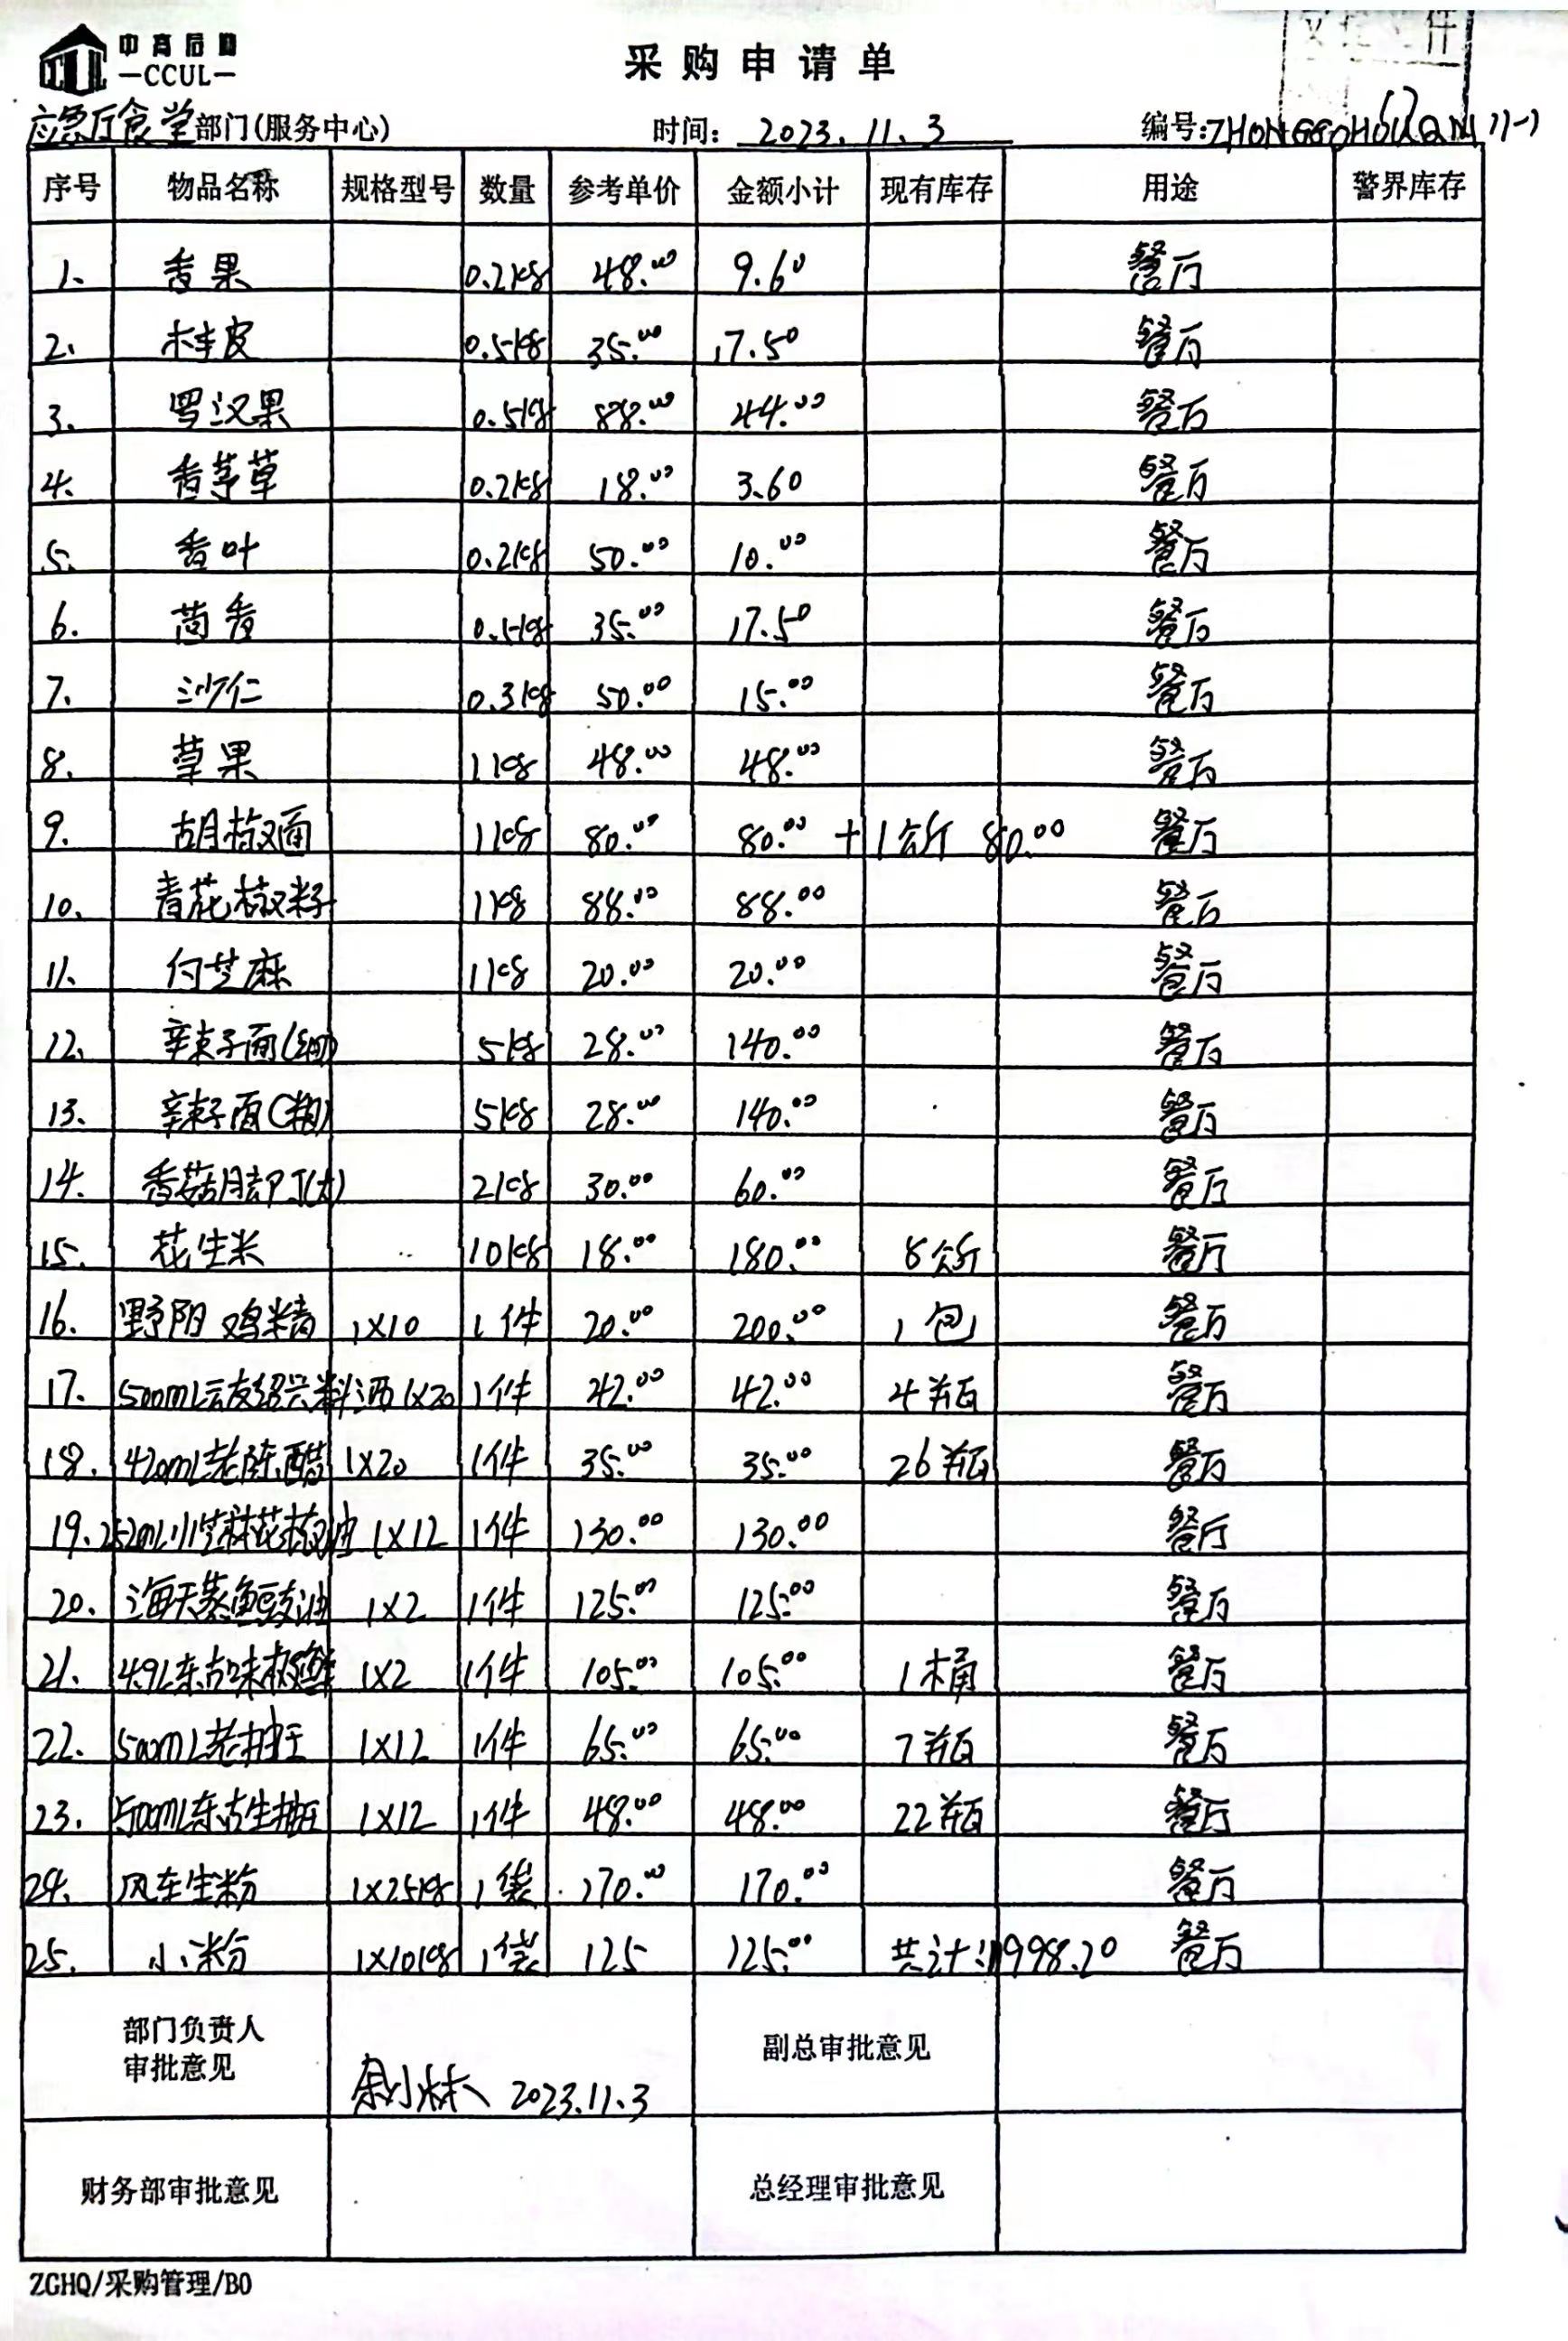 中育后勤
—CCUL—
采购申请单
应急厅食堂部门(服务中心) 时间: 2023.11.3 编号:
序号 物品名称 规格型号 数量 参考单价 金额小计 现有库存 用途 警界库存
1、 香果 0.2kg 48.00 9.60 餐厅
2、 桂皮 0.5kg 35.00 17.50 餐厅
3、 罗汉果 0.5kg 88.00 44.00 餐厅
4、 香茅草 0.2kg 18.00 3.60 餐厅
5、 香叶 0.2kg 50.00 10.00 餐厅
6. 茴香 0.5kg 35.00 17.50 餐厅
7. 沙仁 0.3kg 50.00 15.00 餐厅
8. 草果 1kg 48.00 48.00 餐厅
9. 胡椒面 1kg 80.00 80.00 + 1公斤 80.00 餐厅
10. 青花椒籽 1kg 88.00 88.00 餐厅
11. 白芝麻 1kg 20.00 20.00 餐厅
12、 辣子面(细) 5kg 28.00 140.00 餐厅
13、 辣子面(粗) 5kg 28.00 140.00 餐厅
14. 香菇脚丁(大) 2kg 30.00 60.00 餐厅
15. 花生米 10kg 18.00 180.00 8公斤 餐厅
16. 野阳鸡精 1X10 1件 20.00 200.00 1包 餐厅
17. 500mL云友绍兴料酒 1X20 1件 42.00 42.00 4瓶 餐厅
18. 420mL老陈醋 1X20 1件 35.00 35.00 26瓶 餐厅
19. 252mL 花椒油 1X12 1件 130.00 130.00 餐厅
20. 海天蒸鱼豉油 1X2 1件 125.00 125.00 餐厅
21. 4.9L东古味极鲜 1X2 1件 105.00 105.00 1桶 餐厅
22. 500mL老抽王 1X12 1件 65.00 65.00 7瓶 餐厅
23. 500mL东古生抽王 1X12 1件 48.00 48.00 22瓶 餐厅
24. 风车生粉 1X25kg 1袋 170.00 170.00 餐厅
25. 小粉 1X10kg 1袋 125 125.00 共计:1998.20 餐厅
部门负责人
审批意见
2023.11.3
副总审批意见
财务部审批意见 总经理审批意见
ZGHQ/采购管理/B0